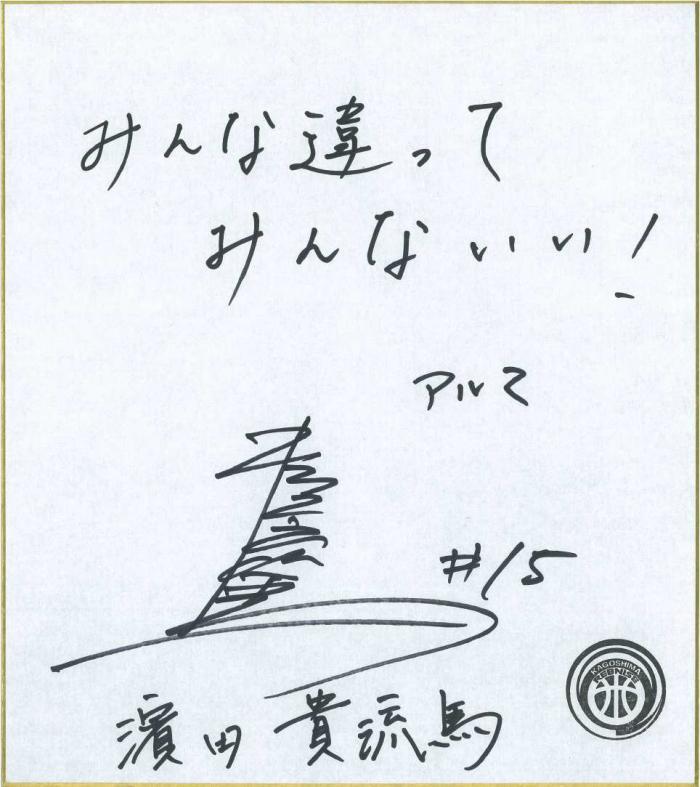 みんな違って
みんないい!
アルマ
#15
KAGOSHIMA
REBNISE
濱田 貴流馬